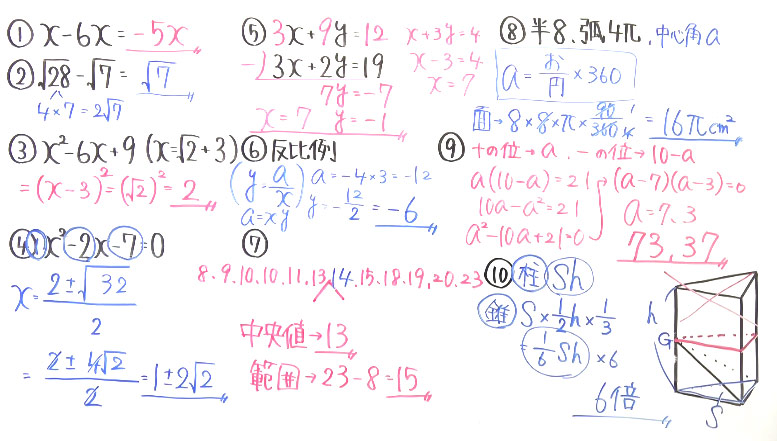 ① x-6x = -5x
② √28 - √7 = √7
4×7 = 2√7
③ x²-6x+9 (x=√2+3)
= (x-3)² = (√2)² = 2
④ 1x²-2x-7=0
x = 2±√32 / 2
= 2±4√2 / 2 = 1±2√2
⑤ 3x+9y=12 x+3y=4
-) 3x+2y=19 x-3=4
7y=-7 x=7
x=7 y=-1
⑥ 反比例
(y=a/x) a=-4×3=-12
a=xy y=-12/2 = -6
⑦
8.9.10.10.11.13.14.15.18.19.20.23
中央値→13
範囲→23-8=15
⑧ 半8、弧4π、中心角a
a = お/円 ×360
面→8×8×π×90/360 = 16πcm²
⑨ 十の位→a、一の位→10-a
a(10-a)=21 (a-7)(a-3)=0
10a-a²=21 a=7.3
a²-10a+21=0 73,37
⑩ 柱 Sh
錐 S×1/2h×1/3
= 1/6Sh ×6
6倍
h
G
S